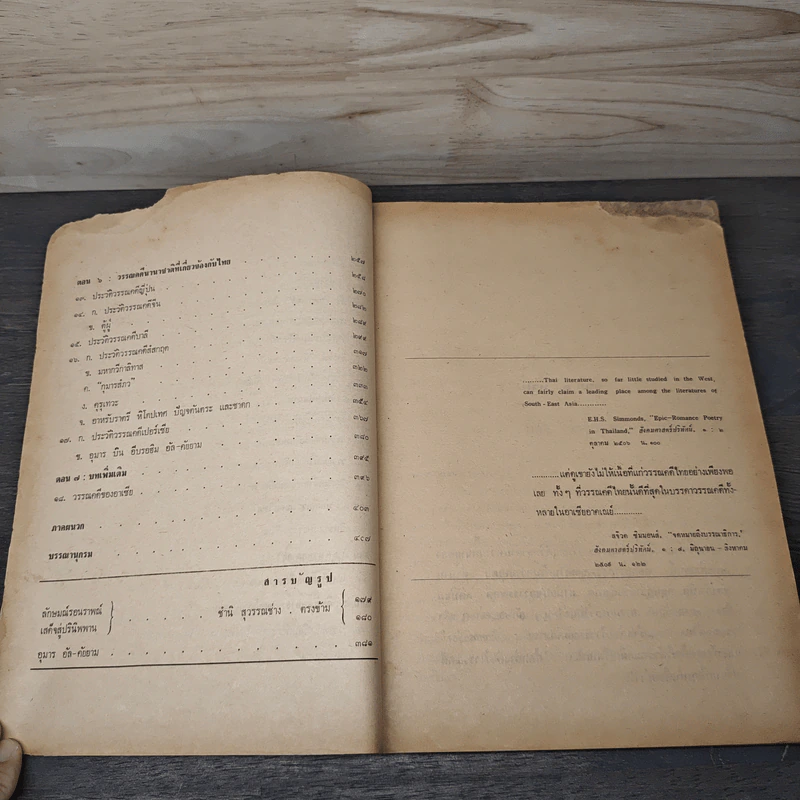 ตอน ๖ : วรรณคดีนานาชาติที่เกี่ยวข้องกับไทย . . . . ๒๕๗
๑๓. ประวัติวรรณคดีญี่ปุ่น . . . . ๒๕๘
๑๔. ก. ประวัติวรรณคดีจีน . . . . ๒๗๐
ข. ตู้ฝู่ . . . . ๒๘๒
๑๕. ประวัติวรรณคดีบาลี . . . . ๒๘๙
๑๖. ก. ประวัติวรรณคดีสันสกฤต . . . . ๒๙๙
ข. มหากวีกาลิทาส . . . . ๓๑๗
ค. "กุมารสัภว" . . . . ๓๒๒
ง. คุรุเทวะ . . . . ๓๓๓
จ. อาหรับราตรี หิโตปเทศ ปัญจตันตระ และชาดก . . . . ๓๕๔
๑๗. ก. ประวัติวรรณคดีเปอร์เซีย . . . . ๓๖๗
ข. อุมาร บิน อีบรอฮิม อัล-คัยยาม . . . . ๓๘๐
ตอน ๗ : บทเพิ่มเติม . . . . ๓๙๕
๑๘. วรรณคดีของอาเซีย . . . . ๓๙๖
ภาคผนวก . . . . ๔๐๓
บรรณานุกรม . . . . ๔๐๗
สารบัญรูป
ลักษมณ์รอนราพณ์ . . . . ชำนิ สุวรรณช่าง . ตรงข้าม ๑๗๙
เสด็จสู่ปรินิพพาน ๑๘๐
อุมาร อัล-คัยยาม . . . . ๓๘๑
..........Thai literature, so far little studied in the West,
can fairly claim a leading place among the literatures of
South-East Asia............
E.H.S. Simmonds, "Epic-Romance Poetry
in Thailand," สังคมศาสตร์ปริทัศน์, ๑ : ๒
ตุลาคม ๒๕๐๖ น. ๑๐๐
..........แต่ดูเขายังไม่ให้เนื้อที่แก่วรรณคดีไทยอย่างเพียงพอ
เลย ทั้งๆ ที่วรรณคดีไทยนั้นดีที่สุดในบรรดาวรรณคดีทั้ง-
หลายในอาเซียอาคเณย์..........
สจ๊วต ซิมมอนส์, "จดหมายถึงบรรณาธิการ,"
สังคมศาสตร์ปริทัศน์, ๑ : ๔, มิถุนายน - สิงหาคม
๒๕๐๕ น. ๑๖๒